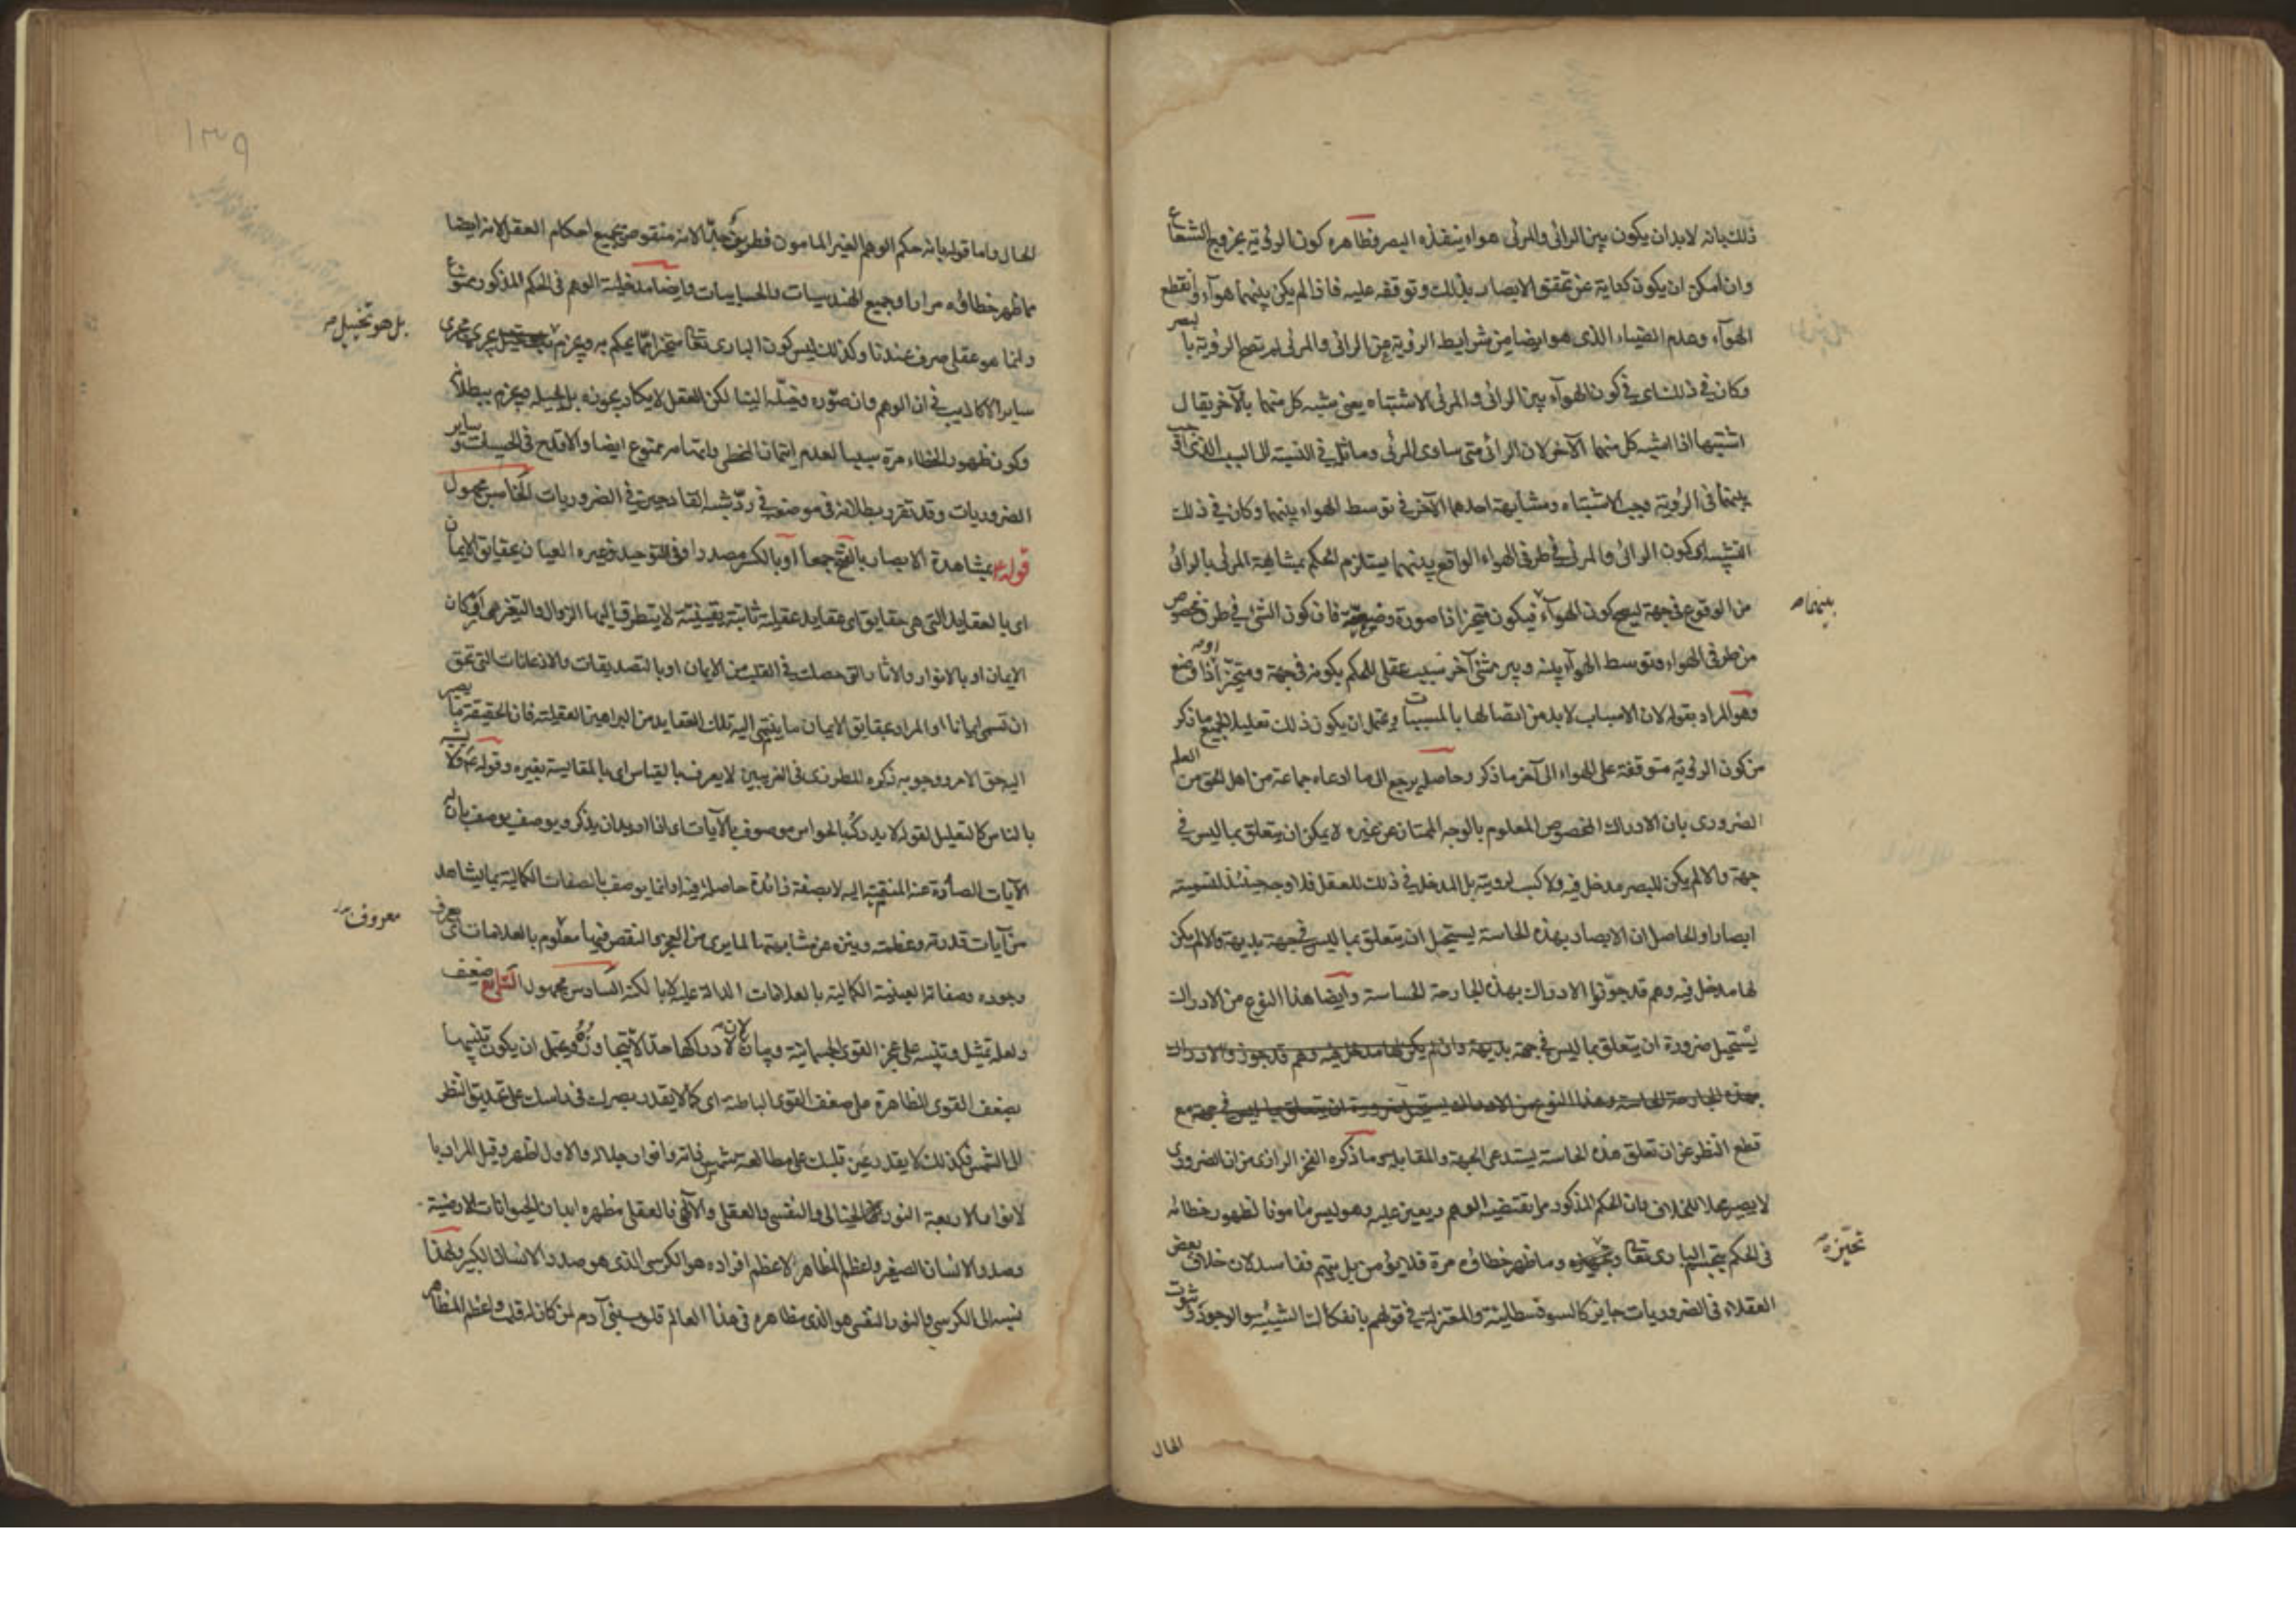 ذلك بانه لابد ان يكون بين الرائى والمرئى هواء ينفذه البصر فظاهره كون الرؤية بخروج الشعاع
وان امكن ان يكون كناية عن تحقق الابصار بذلك وتوقفه عليه فاذا لم يكن بينهما هوآء وانقطع
الهوآء وعدم الضياء الذى هو ايضا من شرايط الرؤية عن الرائى والمرئى لم تصح الرؤية بالبصر
وكان فى ذلك اى فى كون الهوآء بين الرائى والمرئى الاشتباه يعنى شبه كل منهما بالآخر يقال
اشتبها اذا اشبه كل منهما الآخر لان الرائى متى ساوى المرئى وماثله فى النسبة الى السبب الذى اوجب
بينهما فى الرؤية وجب الاشتباه ومشابهة احدهما الآخر فى توسط الهواء بينهما وكان فى ذلك
التشبيه اى كون الرائى والمرئى فى طرفى الهواء الواقع بينهما يستلزم الحكم بمشابهة المرئى بالرائى
من الوقوع فى جهة ليصح كون الهوآء فيكون متحيزا ذا صورة وضعية فان كون الشئ فى طرف مخصوص
بينهما صح
من طرفى الهواء وتوسط الهوآء بينه وبين شئ آخر سبب عقلى للحكم بكونه فى جهة ومتحيزا او ذا وضع
وهو المراد بقوله لان الاسباب لابد من اتصالها بالمسببات ويحتمل ان يكون ذلك تعليلا لجميع ما ذكر
من كون الرؤية متوقفة على الهواء الى آخر ما ذكر وحاصله يرجع الى ما ادعاه جماعة من اهل الحق من العلم
الضرورى بان الادراك المخصوص المعلوم بالوجه الممتاز عن غيره لا يمكن ان يتعلق بما ليس فى
جهة والا لم يكن للبصر مدخل فيه ولا كسب لرويته بل المدخل فى ذلك للعقل فلا وجه حينئذ لتسميته
ابصارا والحاصل ان الابصار بهذه الحاسة يستحيل ان يتعلق بما ليس فى جهة بديهة والا لم يكن
لها مدخل فيه وهم قد جوّزوا الادراك بهذه الجارحة الحساسة وايضا هذا النوع من الادراك
يستحيل ضرورة ان يتعلق بما ليس فى جهة بديهة وان لم يكن لها مدخل فيه وهم قد جوزوا الادراك
بهذه الجارحة الحاسة وهذا النوع من الادراك يستحيل ضرورة ان يتعلق بما ليس فى جهة مع
قطع النظر عن ان تعلق هذه الحاسة يستدعى الجهة والمقابلة وما ذكره الفخر الرازى من ان الضرورى
لا يصير محلا للخلاف وان الحكم المذكور مما يقتضيه الوهم ويعين عليه وهو ليس مأمونا لظهور خطائه
فى الحكم بتجسم البارى تعالى وما ظهر خطاؤه مرة فلا يؤمن بل يتهم ففاسد لان خلاف بعض
تحيّزه صح
العقلاء فى الضروريات جايز كالسوفسطائية والمعتزلة فى قولهم بانفكاك الشيئية والوجود وثبوت
الحال
١٣٩
الحال واما قوله بانه حكم الوهم الغير المامون فطريف جدّا لانه منقوض بجميع احكام العقل لانه ايضا
مما ظهر خطاؤه مرارا وجميع الهندسيات والحسابيات وايضا مدخلية الوهم فى الحكم المذكور ممنوع
وانما هو عقلى صرف عندنا وكذلك ليس كون البارى تعالى متحيزا مما يحكم به ويجزم يجرى مجرى
بل هو تخييل صح
ساير الاكاذيب فى ان الوهم وان صوّره وخيّله الينا لكن العقل لا يكاد يجوزه بل يحيله ويجزم ببطلانه
وكون ظهور الخطاء مرة سببا لعدم ايتمان المخطى واتهامه ممنوع ايضا والا قدح فى الحسيات وساير
الضروريات وقد تقرر بطلانه فى موضعه فى ردّ شبه القادحين فى الضروريات الخامس مجهول
قوله ع بمشاهدة الابصار بالفتح جمعا او بالكسر مصدرا وفى التوحيد وغيره العيان بحقايق الايمان
اى بالعقايد التى هى حقايق اى عقايد عقلية ثابتة يقينية لا يتطرق اليها الزوال والتغير هى اركان
الايمان او بالانوار والاثار التى حصلت فى القلب من الايمان او بالتصديقات والاذعانات التى تحق
ان تسمى ايمانا او المراد بحقايق الايمان ما ينتهى اليه تلك العقايد من البراهين العقلية فان الحقيقة ما يصير
اليه حق الامر ووجوبه ذكره المطرزى فى الغريبين لا يعرف بالقياس اى بالمقايسة بغيره وقوله ع ولا يشبه
بالناس كالتعليل لقوله لا يدرك بالحواس موصوف بالآيات اى اذا اريد ان يذكر ويوصف يوصف بان له
الآيات الصادرة عنه المنتهية اليه لا بصفة زائدة حاصلة فيه او انما يوصف بالصفات الكمالية بما يشاهد
من آيات قدرته وعظمته وينزه عن مشابهتها لما يرى من العجز والنقص فيها معلوم بالعلامات اى يعرف
معروف صح
وجوده وصفاته العينية الكمالية بالعلامات الدالة عليه لا بالكنه السادس مجهول السابع ضعيف
ولعله تمثيل وتنبيه على عجز القوى الجسمانية وبيان لان لادراكها حدا لا تتجاوزه ويحتمل ان يكون تنبيها
بضعف القوى الظاهرة على ضعف القوى الباطنة اى كما لا يقدر بصرك فى راسك على تحديق النظر
الى الشمس فكذلك لا يقدر عين قلبك على مطالعة شمس ذاته وانوار جلاله والاول اظهر وقيل المراد با
لانوار الاربعة النور الخيالى والنفسى والعقلى والآلهى فالعقلى مظهره ابدان الحيوانات الارضية
وصدر الانسان الصغير واعظم المظاهر لاعظم افراده هو الكرسى الذى هو صدر الانسان الكبير ولهذا
نسبه الى الكرسى والنور النفسى هو الذى مظاهره فى هذا العالم قلوب بنى آدم لمن كان له قلب واعظم المظاهر